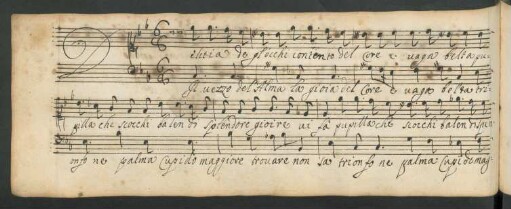 Delitia de gl'occhi contento del Core è vaga beltà pu=
Il vezzo del Alma la gioia del Core è vaga beltà tri=
pilla che scocchi baleni di splendore gioire vi fà pupilla che scocchi baleni di splen=
onfo ne palma Cupido maggiore trovare non sà trionfo ne palma Cupido mag=